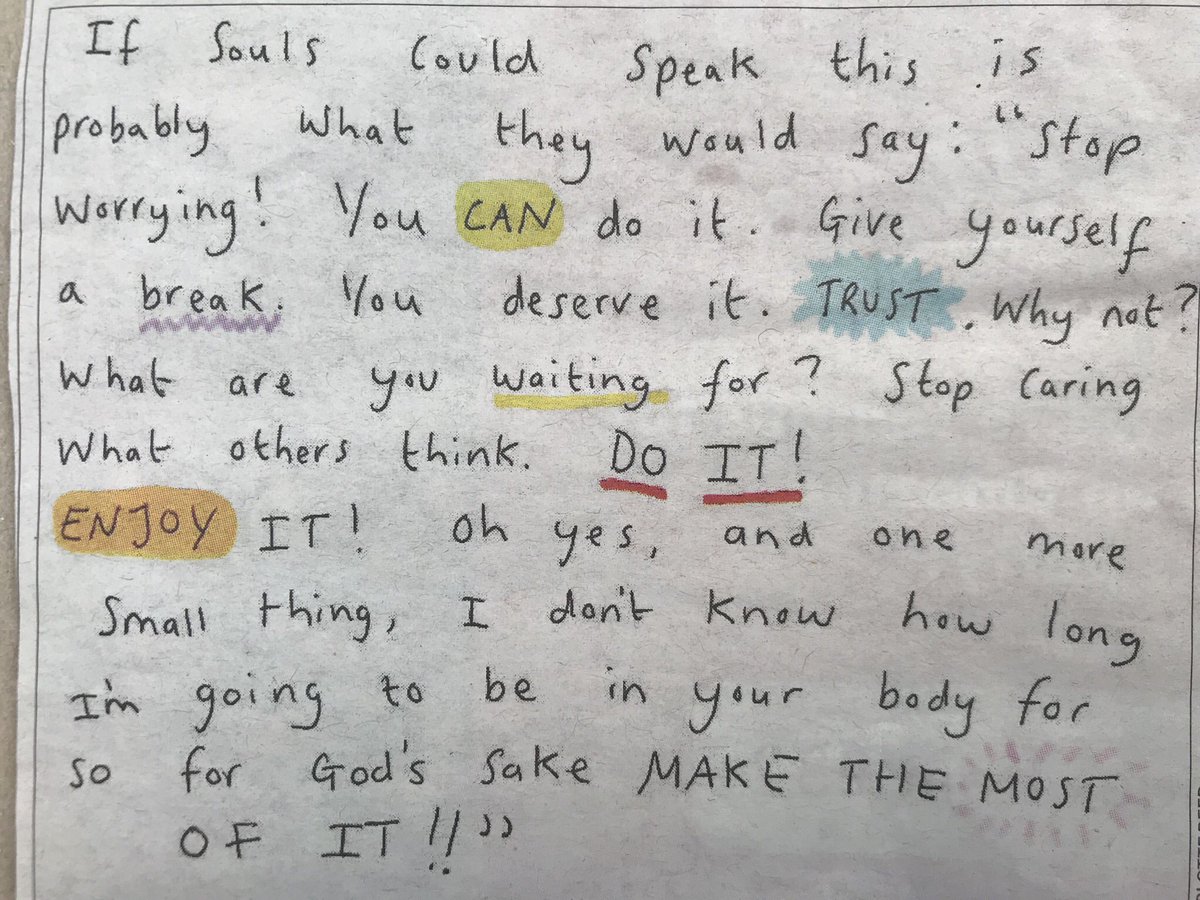 If souls could speak this is
probably what they would say: "stop
worrying! You CAN do it. Give yourself
a break. You deserve it. TRUST. Why not?
What are you waiting for? Stop caring
what others think. DO IT!
ENJOY IT! Oh yes, and one more
small thing, I don't know how long
I'm going to be in your body for
so for God's sake MAKE THE MOST
OF IT!!"